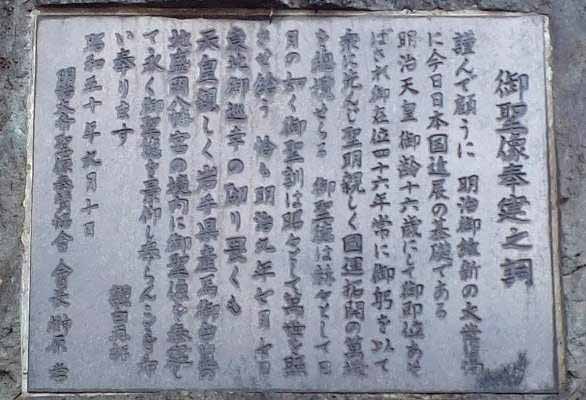 御聖像奉建之詞
謹んで顧うに 明治御維新の大業は
に今日日本国進展の基礎である
明治天皇 御齢十六歳にして御即位あそ
ばされ御在位四十六年常に御躬を以て
衆に先んじ聖明親しく国運拓開の萬機
を總攬せらる 御聖徳は赫々として日
月の如く御聖訓は昭々として萬世を照
させ給う 恰も明治九年七月十日
東北御巡幸の砌り畏くも
天皇親しく岩手県産馬御台覧
地盛岡八幡宮の境内に御聖像を奉建し
て永く御聖徳を景仰し奉らんことを希
い奉ります
昭和五十年九月十日
明治天皇聖像奉賛協会 会長